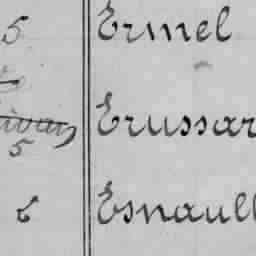 5 Ermel
5 Erussar
6 Esnaull